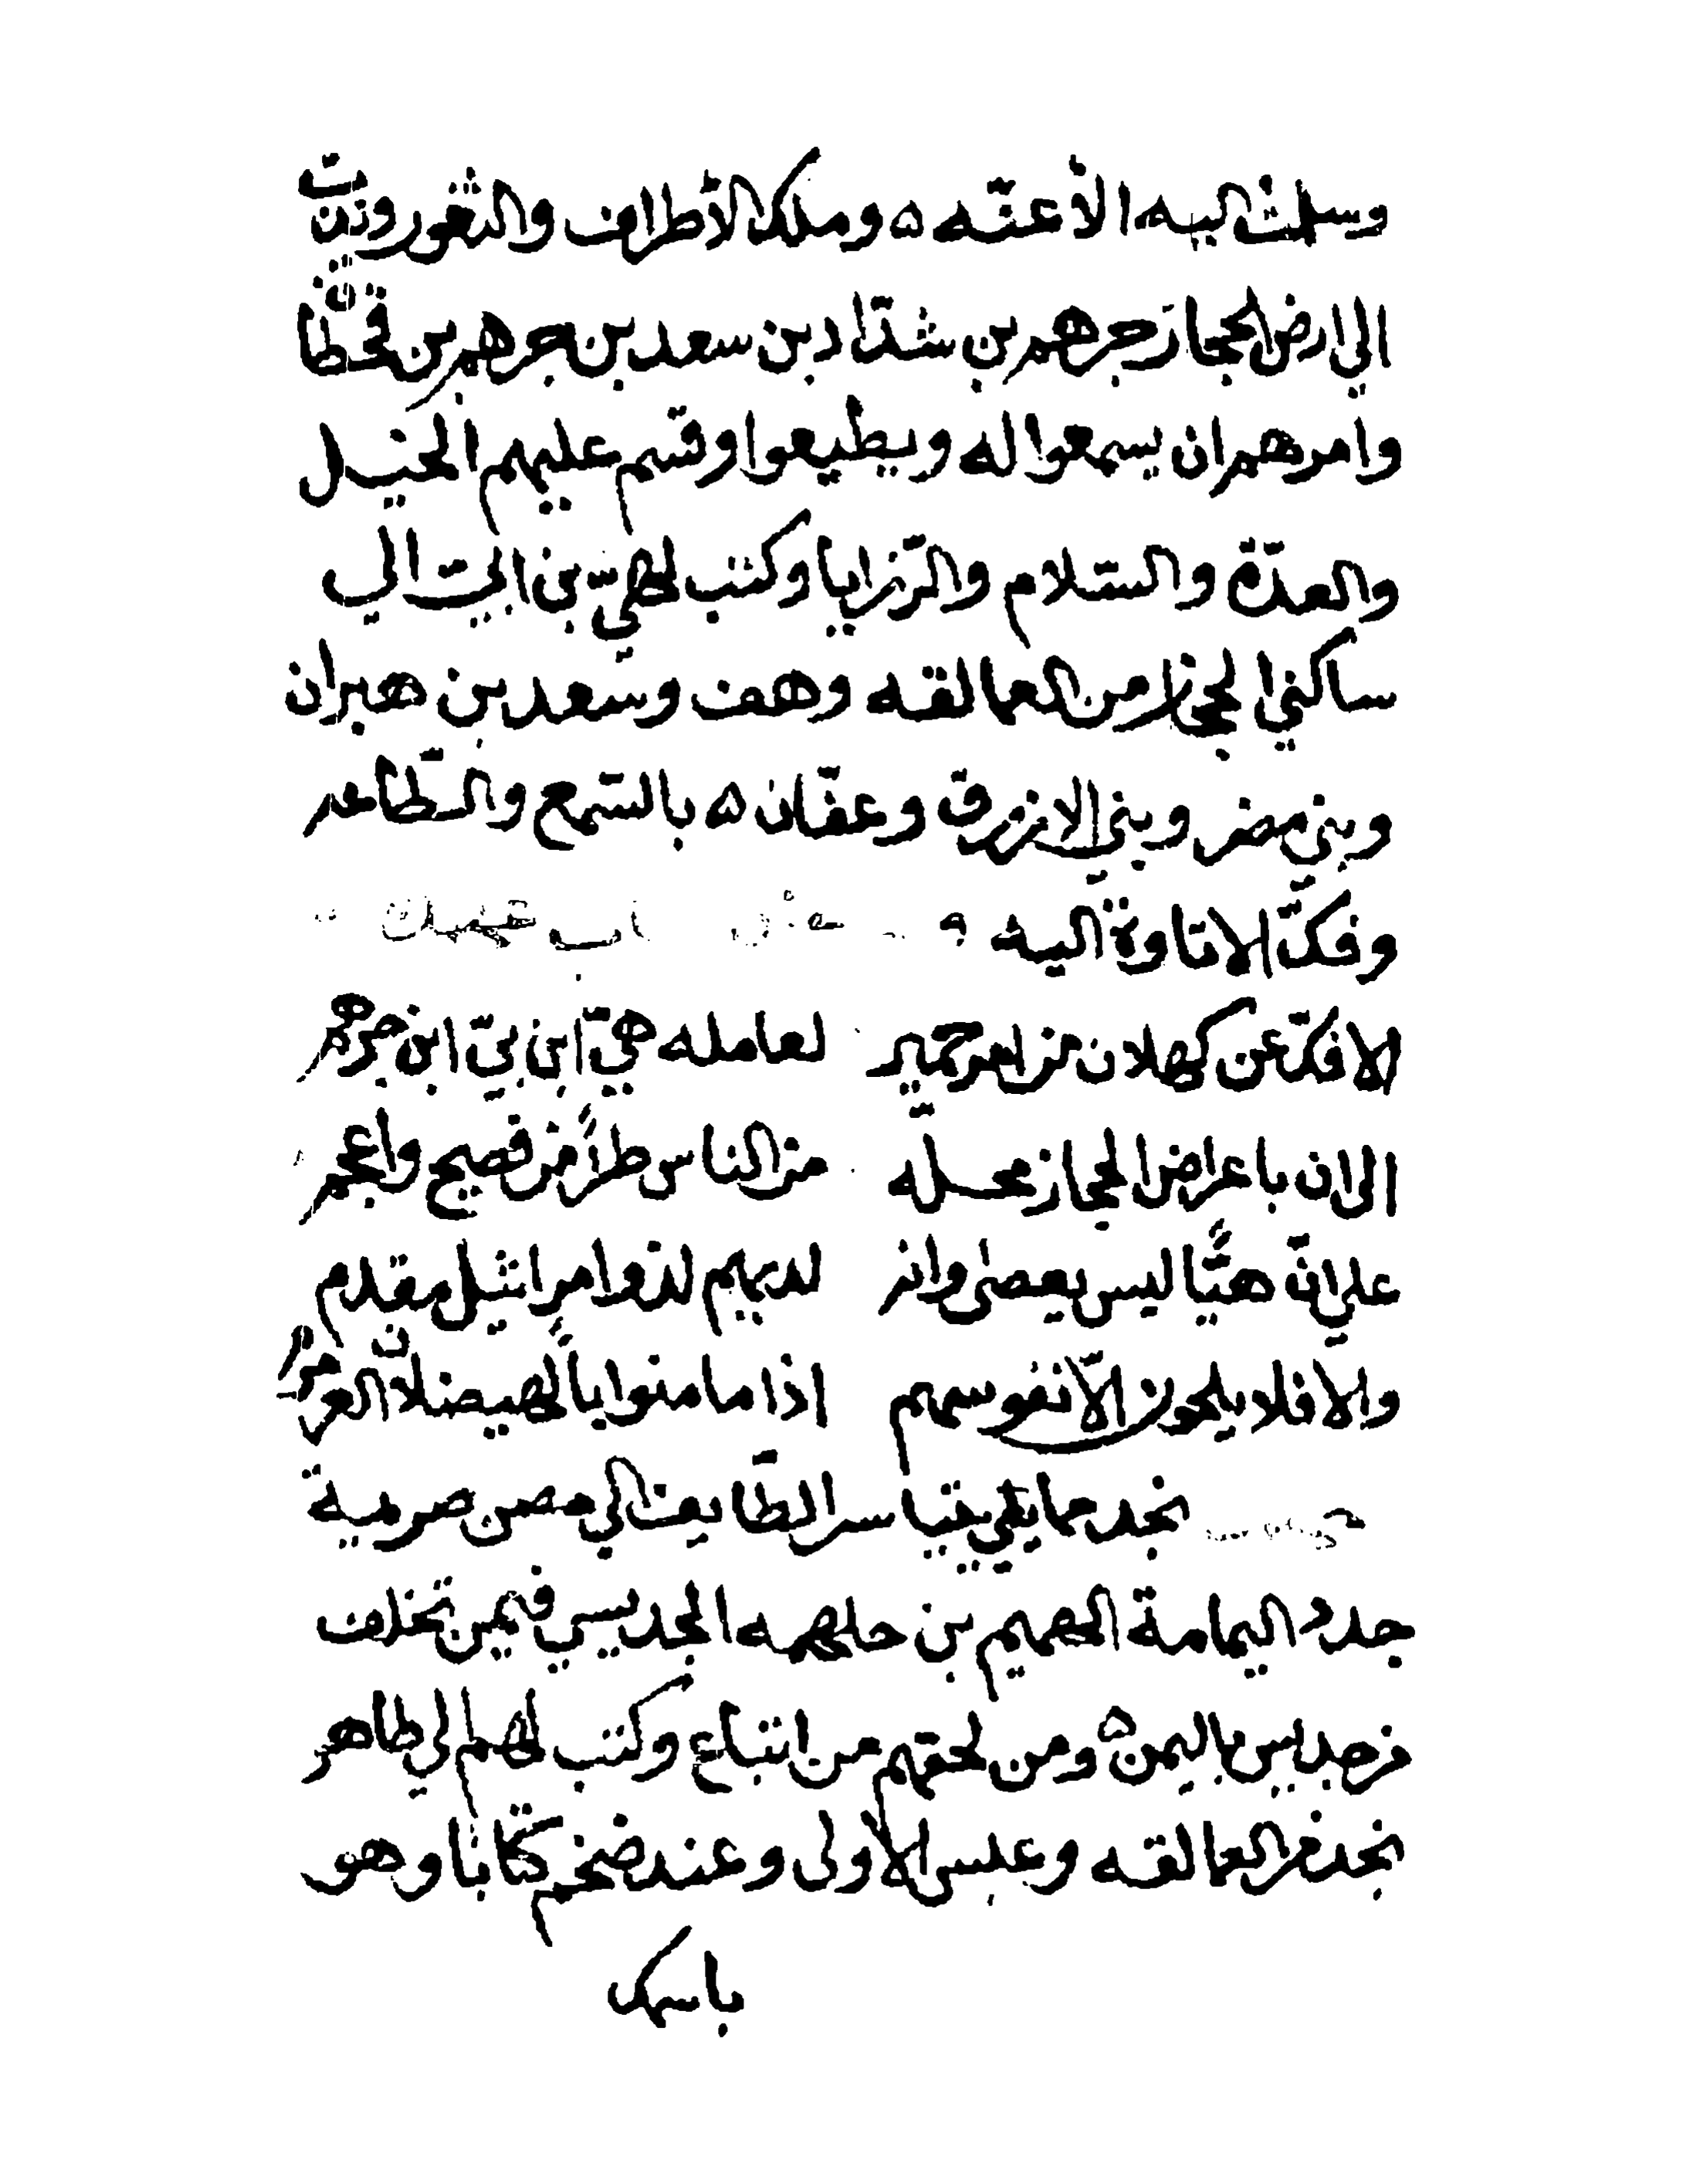 وسلمت اليه الأعنّه ٥ وملك الأطراف والثغور وزيّن
الي ارض الحجاز جرهم بن شدّاد بن سعد بن جرهم بن قحطان
وامرهم ان يسمعوا له ويطيعوا وقسم عليهم الخيل
والعدّة والسّلام والرّزايا وكتب لهيّ بن ابيّ الي
ساكني الحجاز من العمالقه وهف وسعد بن هبران
وبني مضر وبني الازرق وعفّان ٥ بالسّمع والطّاعه
وفكّ الاتاوة اليه
الا فكّ عن كهلان من امر حمير لعامله هيّ ابن بيّ ابن جرهم
الى ان باعراض الحجاز محلّه من الناس طرّاً من فصيح واعجم
علي انّ هيّا ليس يعصى وانه لديهم لذوا امر اثيل مقدم
والا فلا يلحون الّا نفوسهم اذا ما منوا يأبا لهيضلان العرمرم
نجد مما يلي خيبا سر الطّايف الي مصن صرمية
جدد اليمامة الهميم بن حلهمه الجديسي فيمن تخلف
من جديس باليمن ٥ ومن لحقهم من اتباع وكتب لهم الي طاهر
نجد من العمالقه وعبس الأولى وعند ضخم كتابا وهو
باسمك